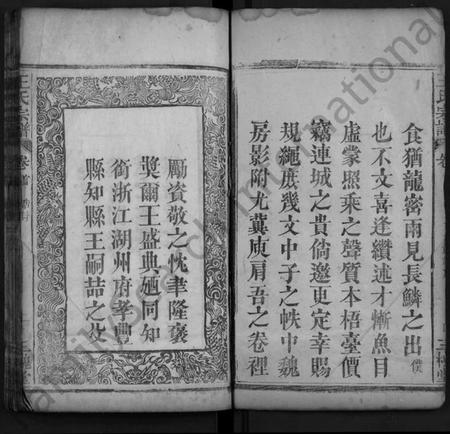 食猶龍密雨見長鱗之出僕
也不文喜逢纘述才慚魚目
虛蒙照乘之聲質本梧臺價
竊連城之貴倘邀更定幸賜
規繩庶幾文中子之帙中魏
房影附尤冀庾肩吾之卷裡
王氏宗譜
卷首
三槐堂
勵資敬之忱聿隆褒
獎爾王盛典廼同知
銜浙江湖州府孝豐
縣知縣王嗣喆之父